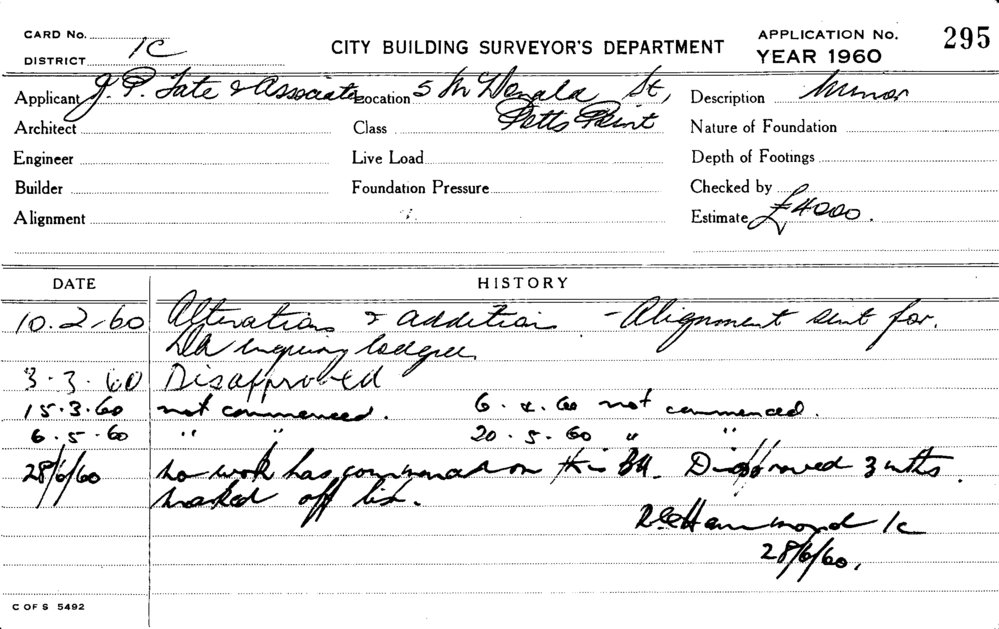 CARD No.
1C
CITY BUILDING SURVEYOR'S DEPARTMENT
APPLICATION No. 295
DISTRICT
YEAR 1960
Applicant J. P. Tate & Associates Location 5 McDonald St, Description Minor
Architect Class Potts Point Nature of Foundation
Engineer Live Load Depth of Footings
Builder Foundation Pressure Checked by
Alignment Estimate £4000.
DATE HISTORY
10.2.60 Alterations & additions - Alignment sent for.
DA enquiry lodged
3.3.60 Disapproved
15.3.60 not commenced. 6.4.60 not commenced.
6.5.60 " " 20.5.60 " "
28/6/60 no work has commenced on this BA. Disapproved 3 mths
marked off list.
Hammond 1c
28/6/60.
C OF S 5492